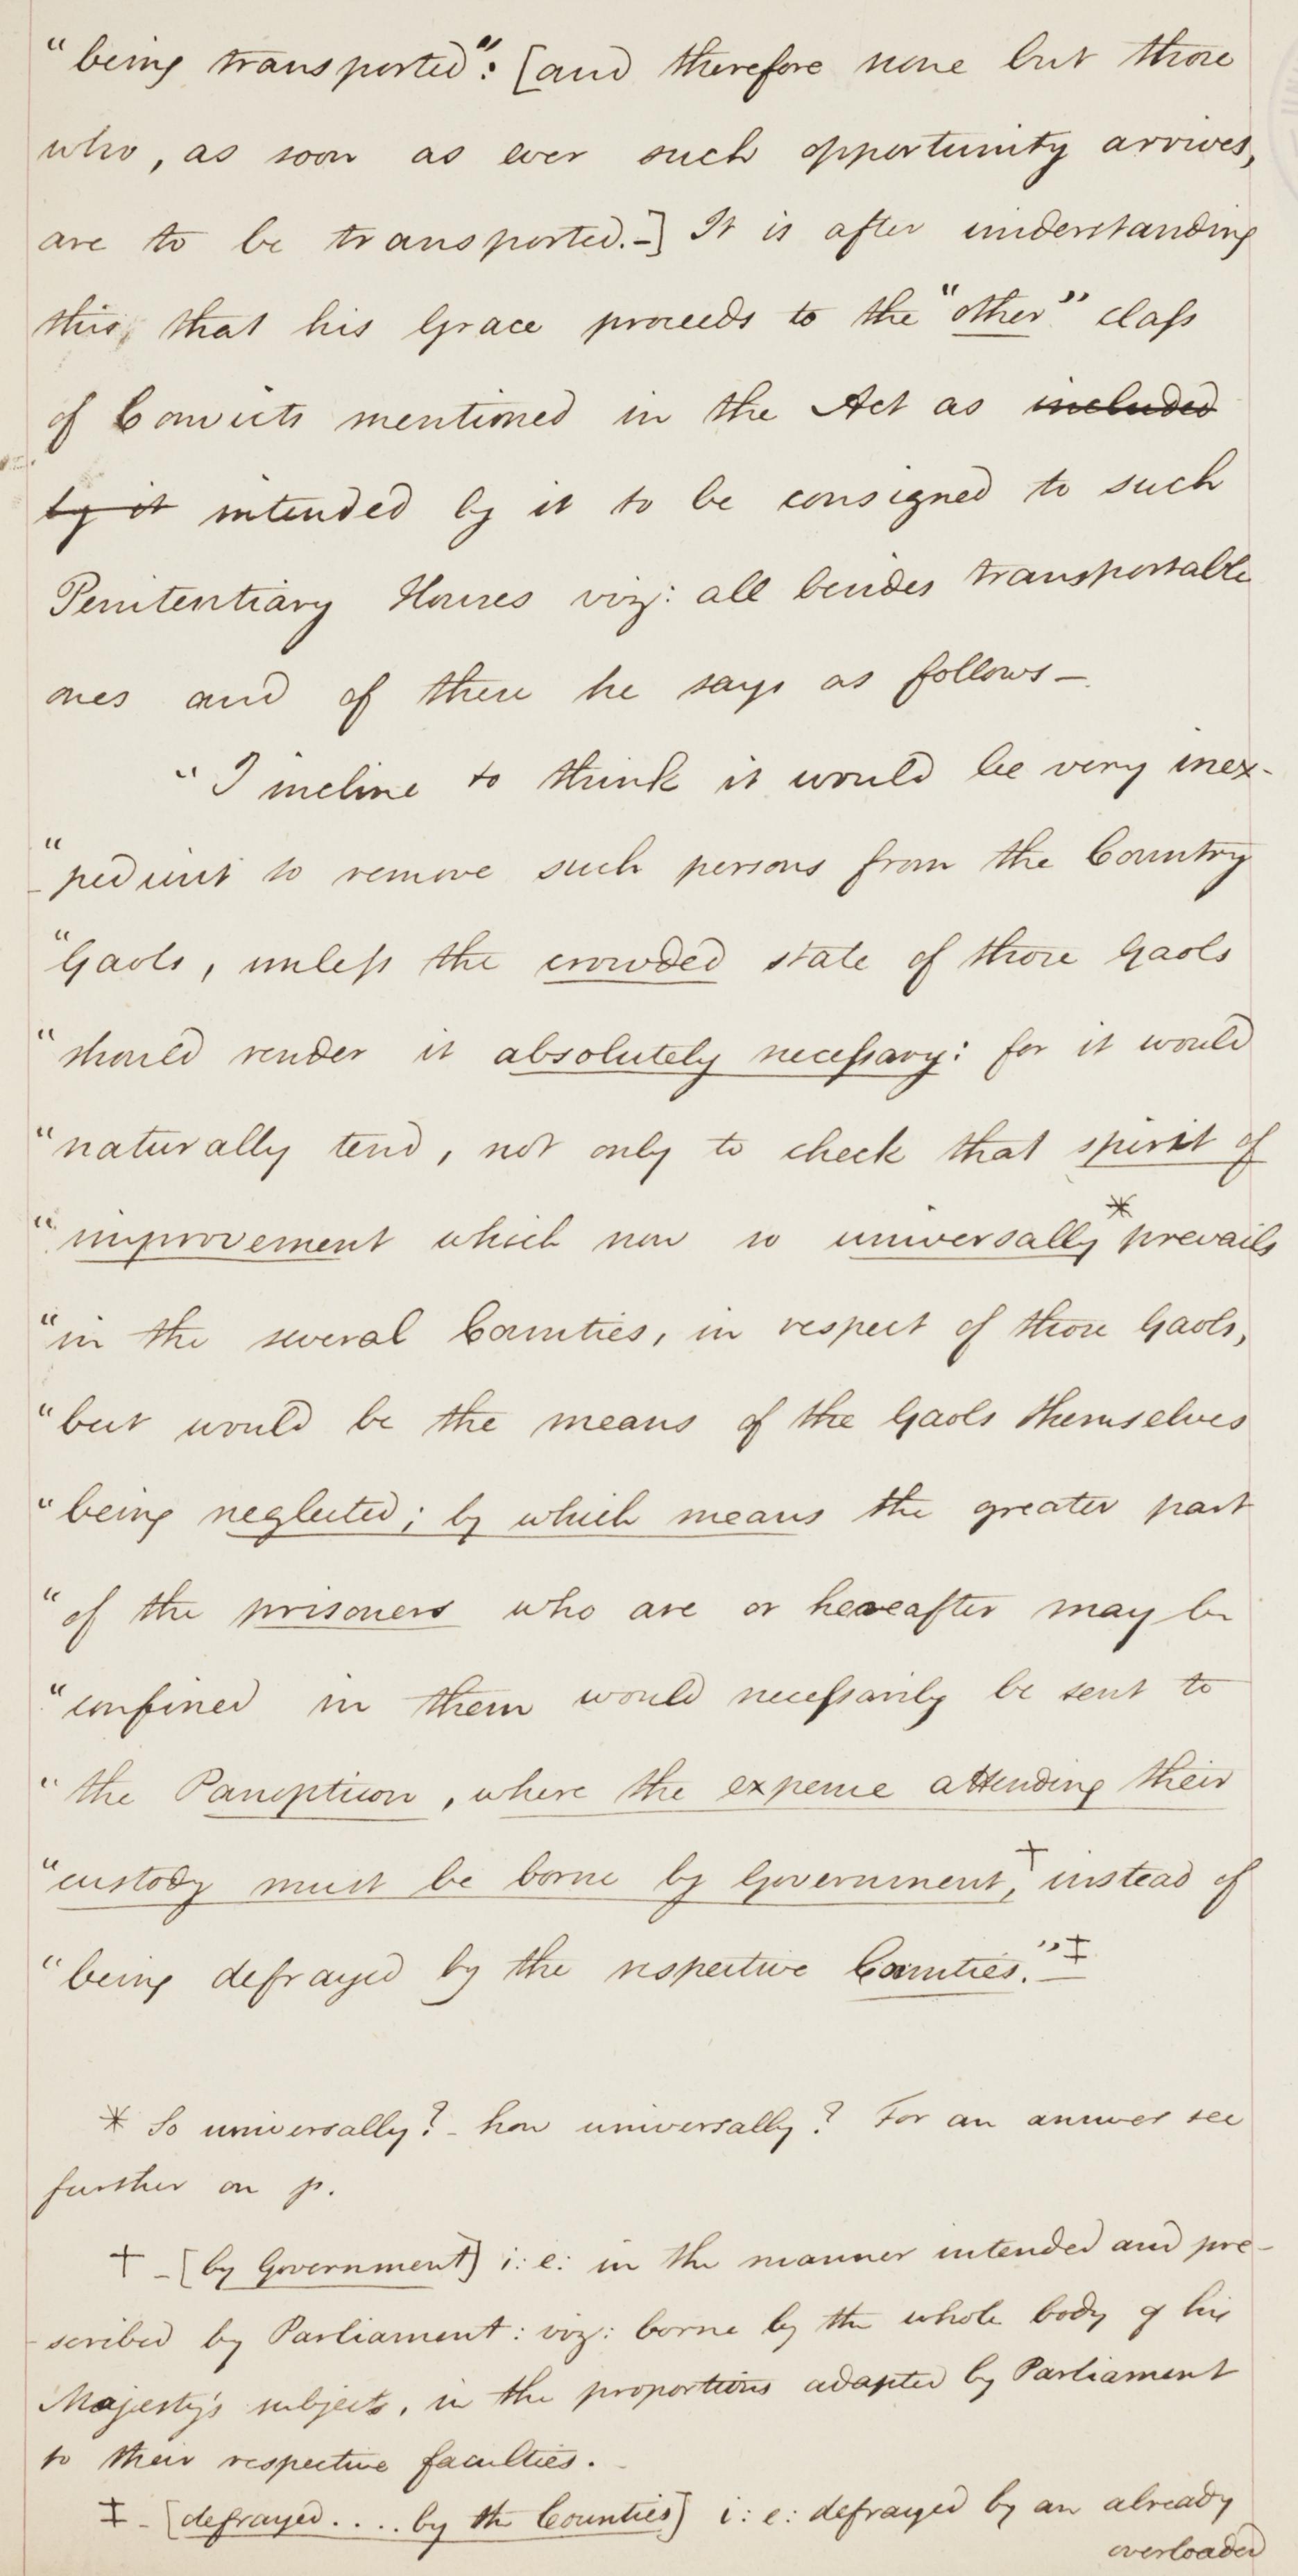 "being transported": [and therefore none but those
who, as soon as ever such opportunity arrives,
are to be transported.-] It is after understanding
this, that his Grace proceeds to the "other" class
of Convicts mentioned in the Act as included
by it intended by it to be consigned to such
Penitentiary Houses viz: all besides transportable
ones and of these he says as follows—
"I incline to think it would be very inex-
"-pedient to remove such persons from the Country
"Gaols, unless the crowded state of those Gaols
"should render it absolutely necessary: for it would
"naturally tend, not only to check that spirit of
"improvement which now so universally * prevails
"in the several Counties, in respect of those Gaols,
"but would be the means of the Gaols themselves
"being neglected; by which means the greater part
"of the prisoners who are or hereafter may be
"confined in them would necessarily be sent to
"the Panopticon, where the expense attending their
"custody must be borne by Government,† instead of
"being defrayed by the respective Counties."‡
* So universally? - how universally? For an answer see
further on p.
† - [by Government] i: e: in the manner intended and pre-
-scribed by Parliament: viz: borne by the whole body of his
Majesty's subjects, in the proportions adapted by Parliament
to their respective faculties.
‡ - [defrayed.... by the Counties] i: e: defrayed by an already
overloaded